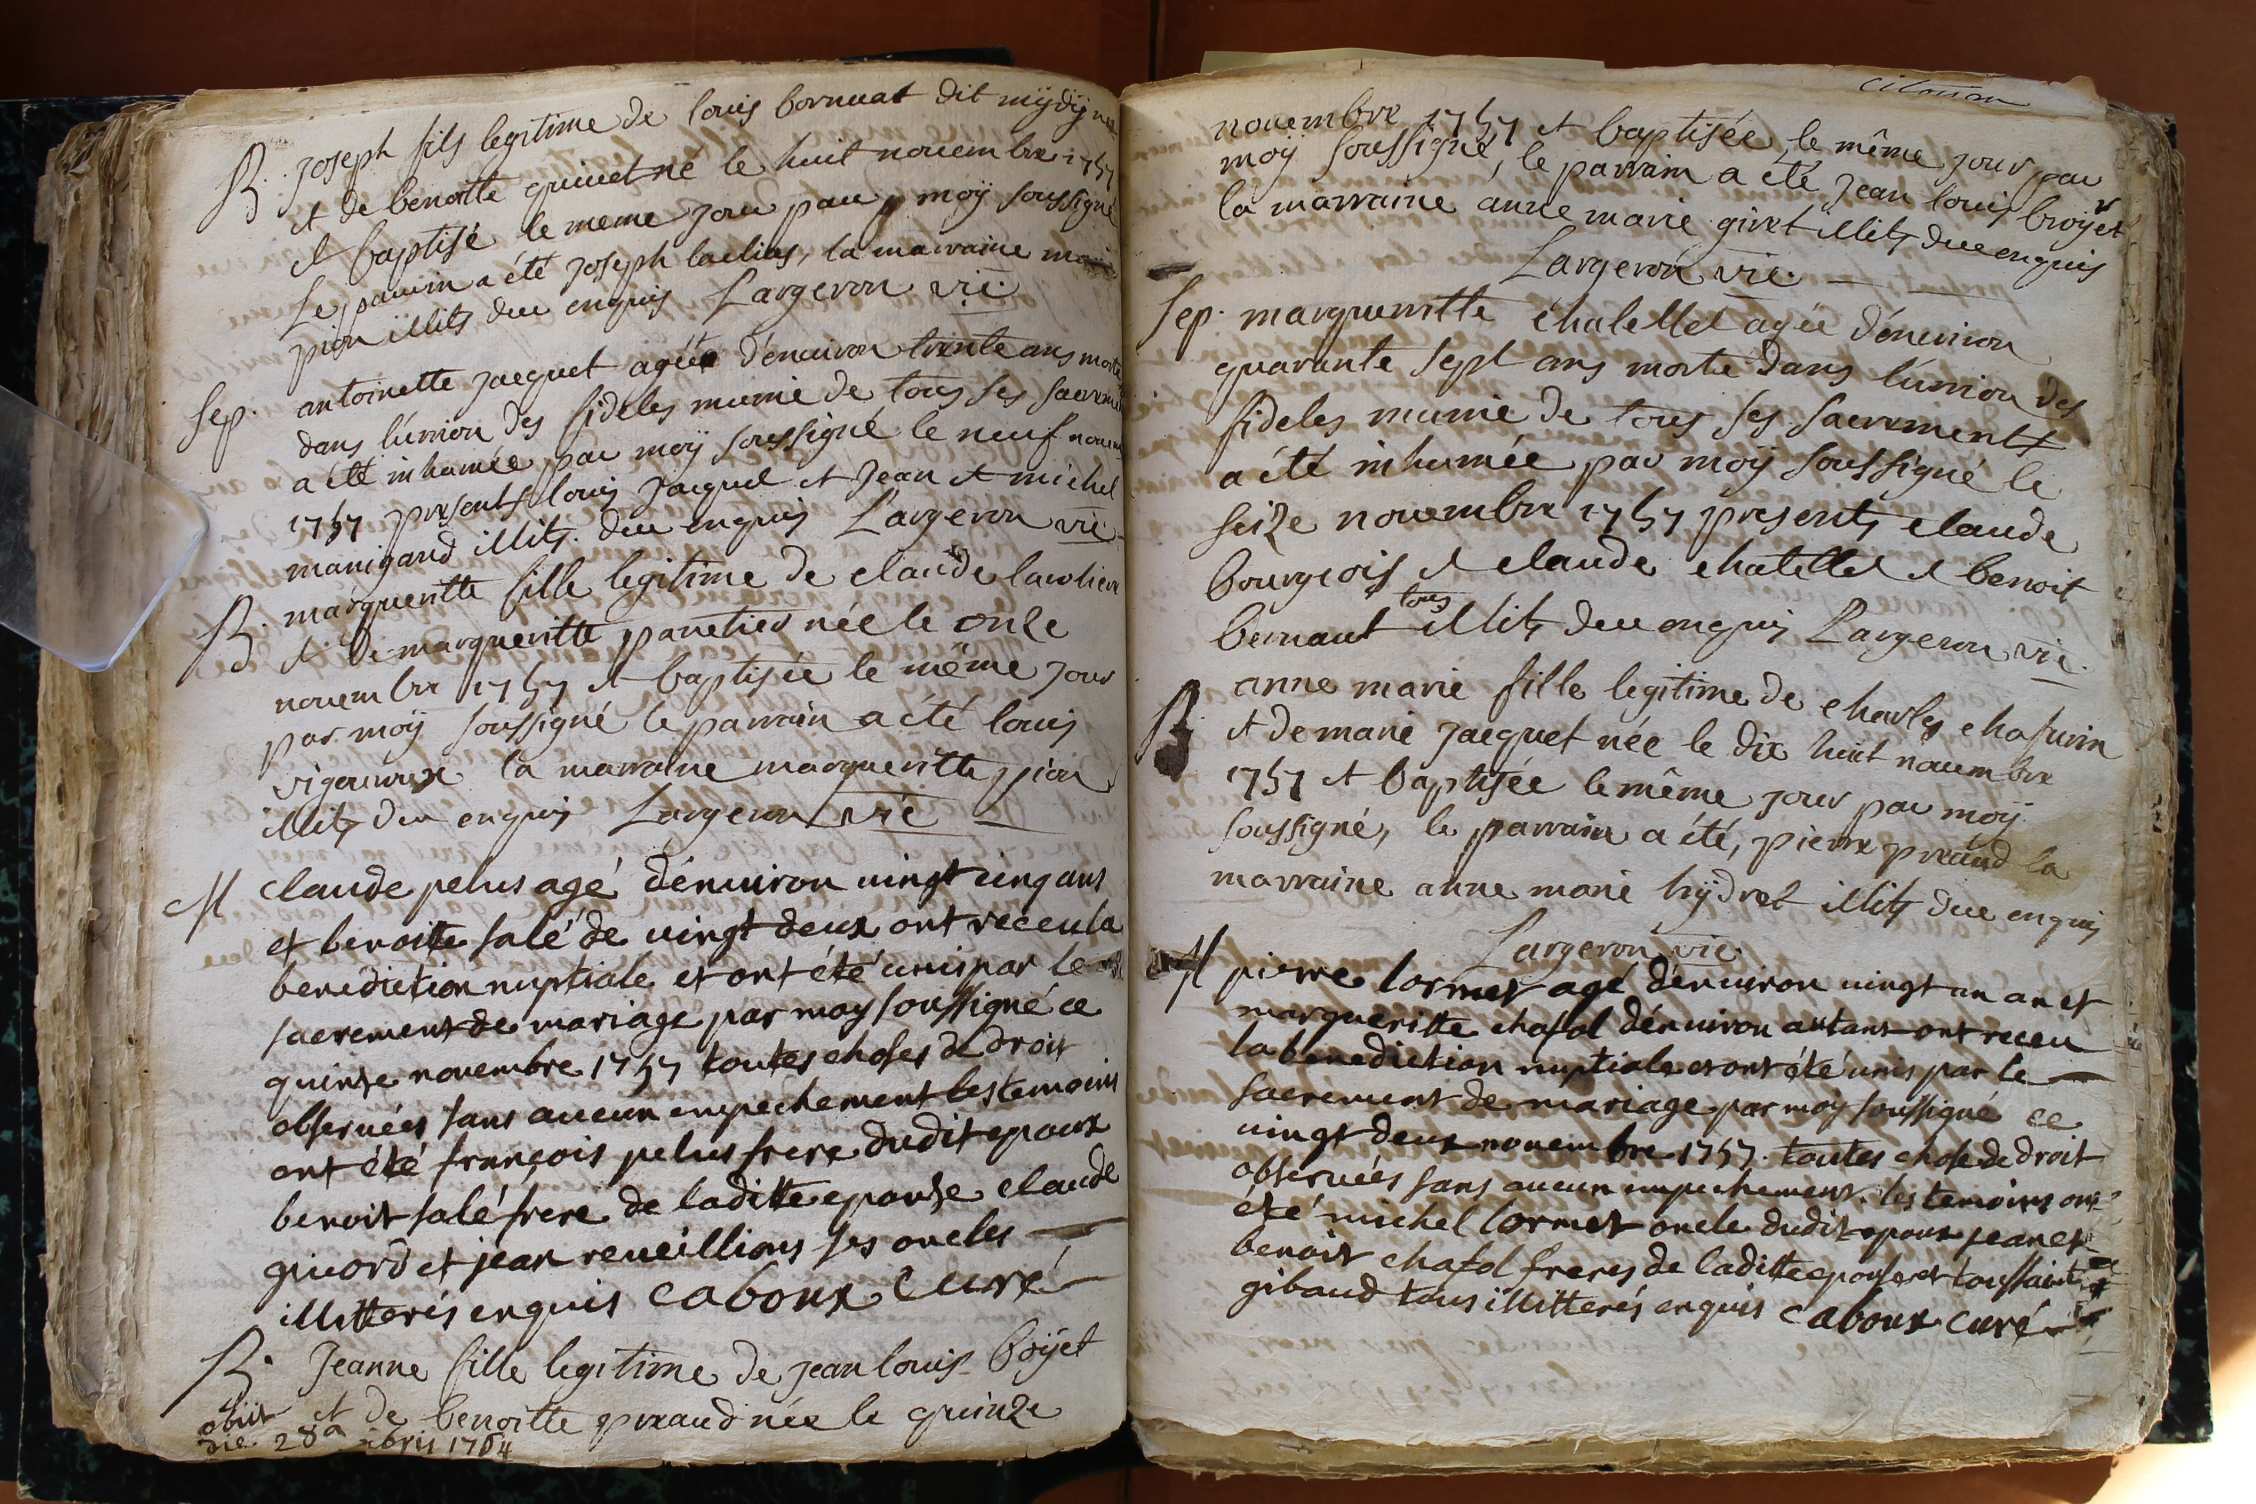 B. Joseph fils legitime de louis bornuat dit
et de benoitte quiuet né le huit nouembre 1757
et baptisé le meme jour par moÿ soussigné
Le parrin a été Joseph la marraine
pion illits due enquis Largeron vic.
Sep. antoinette Jacquet agée d'enuiron trente ans morte
dans l'union des fideles munie de tous ses sacreme
a été inhumée par moÿ soussigné le neuf nouem
1757 presents louis Jacquet et Jean et michel
manigand illits. due enquis Largeron vic
B. margueritte fille legitime de claude
et de margueritte panetier née le onze
nouembre 1757 et baptisée le même jour
par moÿ soussigné le parrain a été louis
vigouroux la marraine margueritte pion
illits due enquis Largeron vic
M claude pelus agé d'enuiron uingt cinq ans
et benoitte salé de uingt deux ont receu la
benediction nuptiale et ont été unis par le
sacrement de mariage par moy soussigné ce
quinze nouembre 1757 toutes choses de droit
obseruées sans aucun empechement les temoins
ont été françois pelus frere dudit epoux
benoit salé frere de laditte epouse claude
guiord et jean reueillions ses oncles
illitterés enquis caboux Curé
B. Jeanne fille legitime de jean louis Boÿet
et de benoitte preaud née le quinze
obiit
die 28a bris 1764
nouembre 1757 et baptisée le même jour par
moÿ soussigné, le parrain a été jean louis broÿer
la marraine anne marie giret illits due enquis
Largeron vic.
Sep. margueritte chatellet agée d'énuiron
quarante sept ans morte dans l'union des
fideles munie de tous ses sacrements
a été inhumée par moÿ soussigné le
seize nouembre 1757 presents claude
bourgeois et claude chatellet et benoit
bernaut tous illits due enquis Largeron vic.
B. anne marie fille legitime de charles chassurin
et de marie Jacquet née le dix huit nouembre
1757 et baptisée le même jour par moÿ
soussigné, le parrain a été, pierre preaud la
marraine anne marie hÿdret illits due enquis
Largeron vic.
M pierre lormet agé d'énuiron uingt un an et
margueritte chafol d'énuiron autant ont receu
la benediction nuptiale et ont été unis par le
sacrement de mariage par moy soussigné ce
uingt deux nouembre 1757. toutes chose de droit
obseruées sans aucun empechement. les temoins ont
été michel lormet oncle dudit epoux jean et
benoit chafol freres de laditte epouse et toussaint
gibaud tous illitterés enquis caboux curé